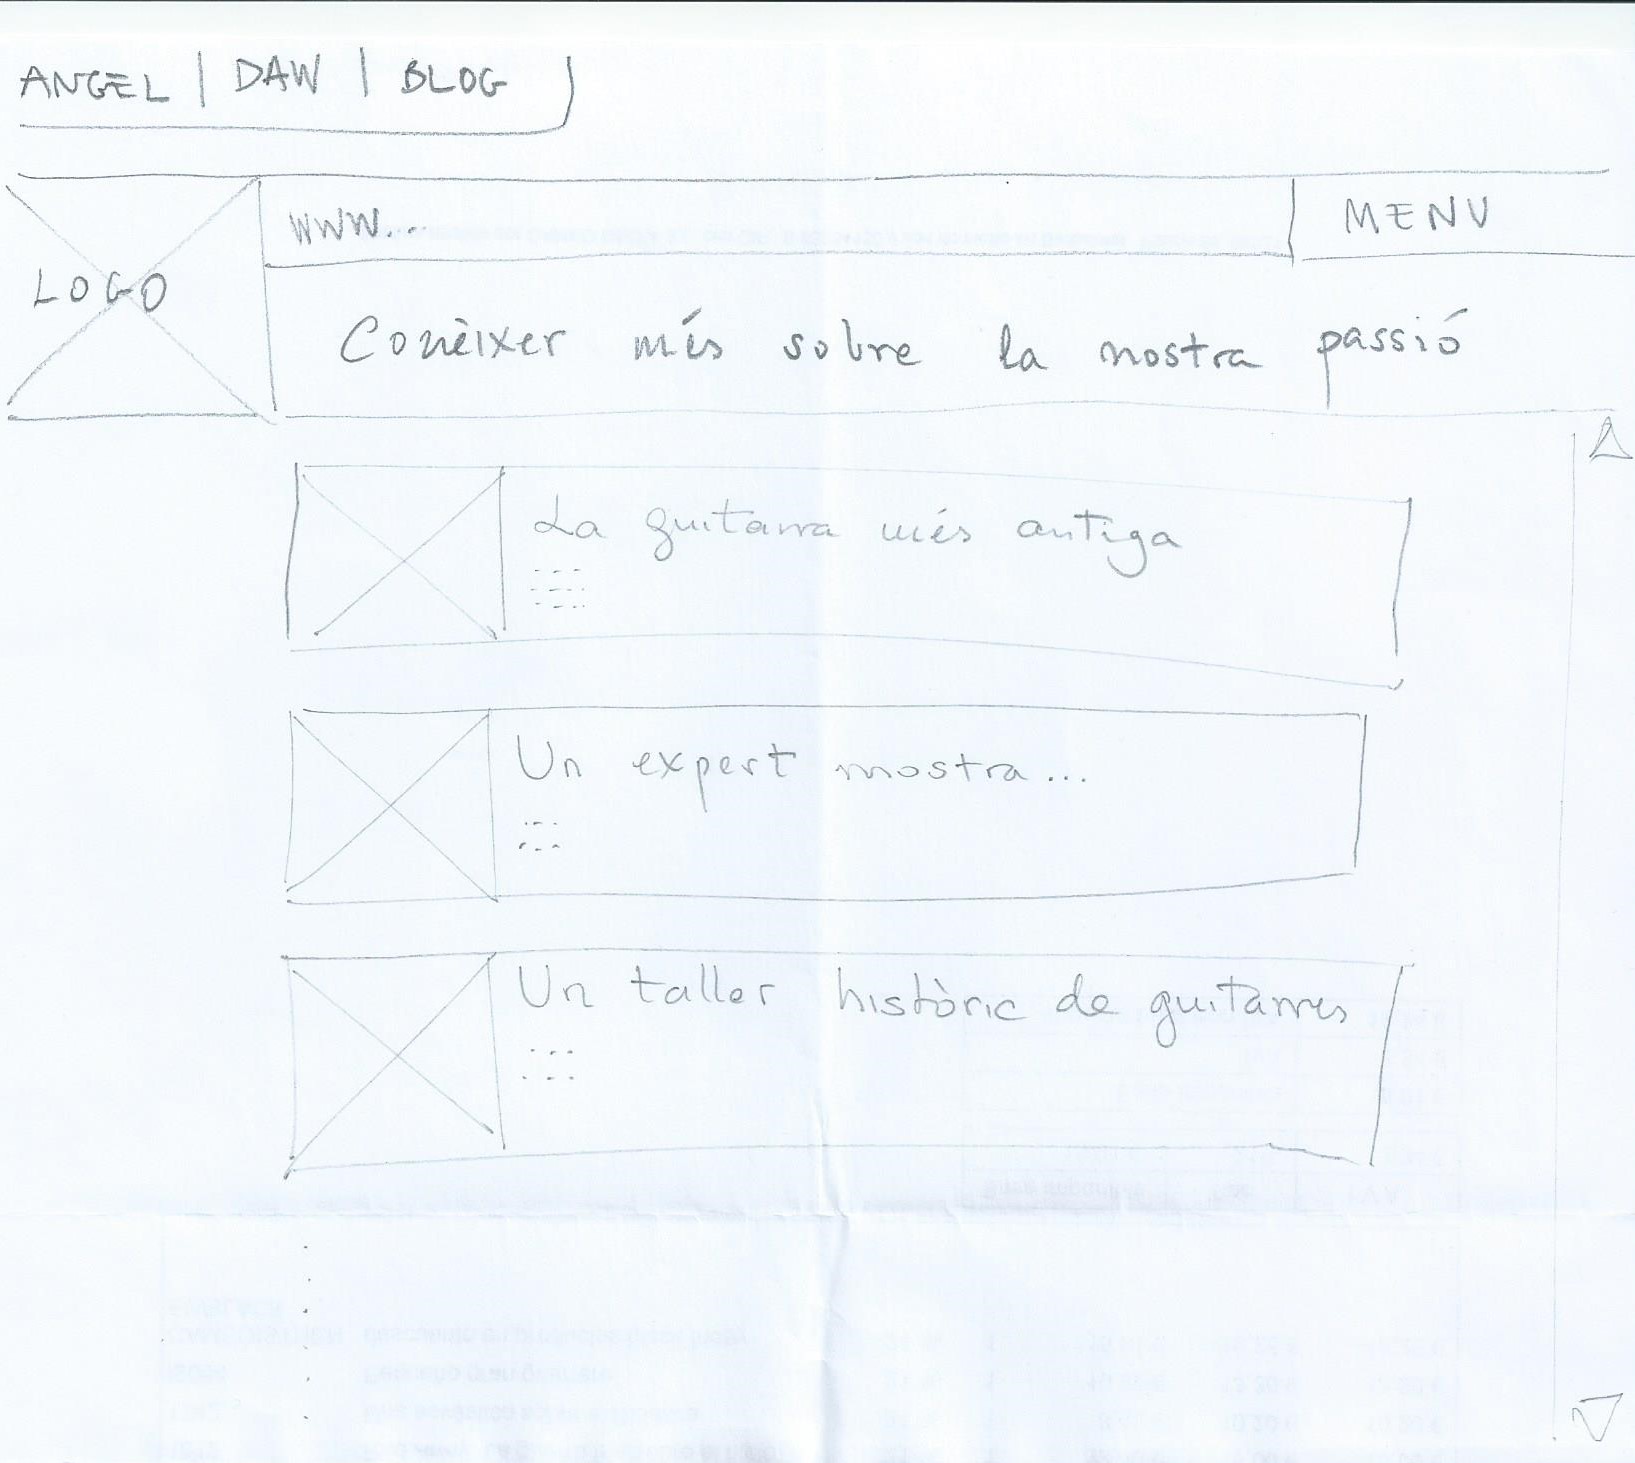 ANGEL | DAW | BLOG
WWW...
MENU
LOGO
Conèixer més sobre la nostra passió
La guitarra més antiga
Un expert mostra...
Un taller històric de guitarres